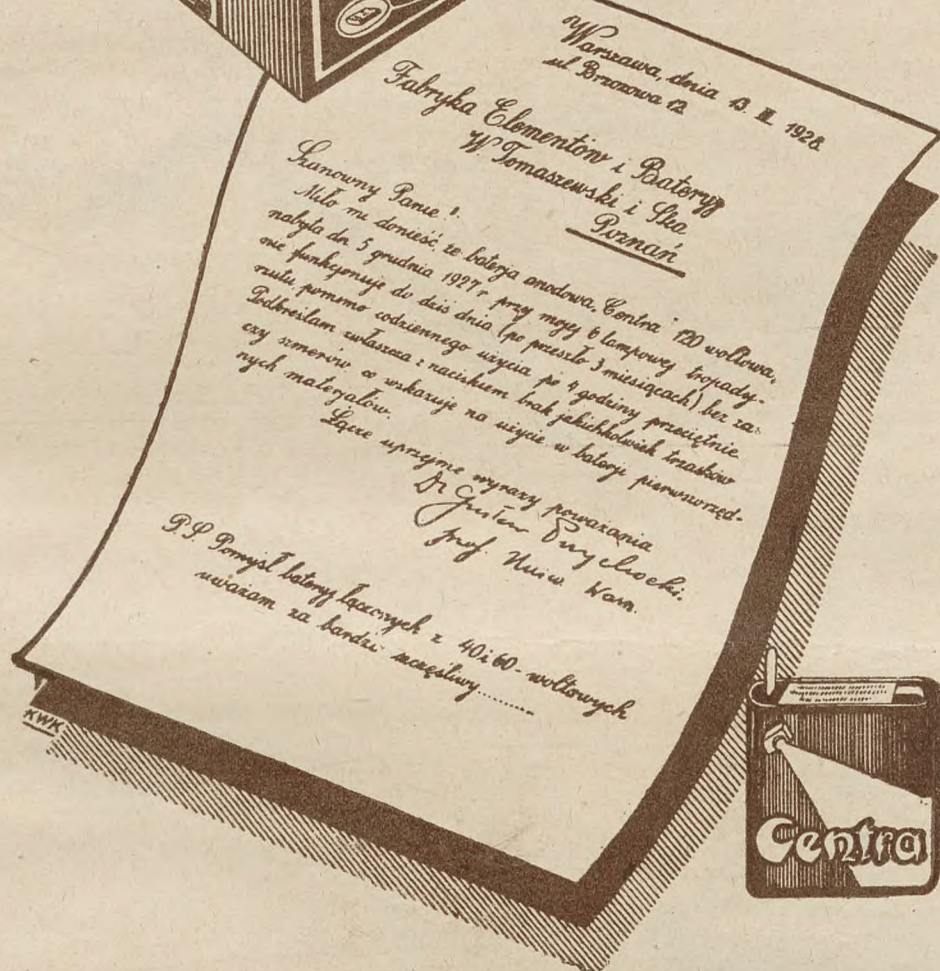 Warszawa, dnia 13. III. 1928.
ul. Brzozowa 12
Fabryka Elementów i Bateryj
W. Tomaszewski i Ska
Poznań
Szanowny Panie!
Miło mi donieść, że baterja anodowa „Centra" 120 woltowa,
nabyta dn. 5 grudnia 1927 r. przy mojej 6 lampowej tropady-
nie funkcjonuje do dziś dnia (po przeszło 3 miesiącach) bez za-
rzutu pomimo codziennego użycia po 4 godziny przeciętnie
Podkreślam zwłaszcza z naciskiem brak jakichkolwiek trzasków
czy szmerów co wskazuje na użycie w baterji pierwszorzęd-
nych materjałów.
Łączę uprzejme wyrazy poważania
Dr Gustaw Przychocki.
prof. Uniw. Warsz.
P.S. Pomysł bateryj łączonych z 40 i 60-woltowych
uważam za bardzo szczęśliwy.........
KWK
Centra